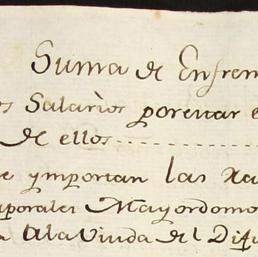 Suma de Enfren
os Salarios por estar e
de ellos
e ymportan las Ra
aporales Mayordomo
a Ala Viuda del Difu